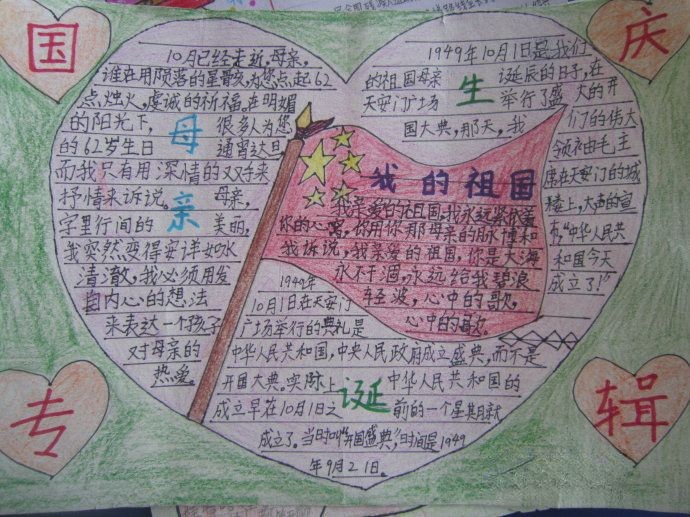 国
庆
专
辑
10月已经走近,母亲,
谁在用陨落的星骸,为您点起62
点烛火,虔诚的祈福。在明媚
的阳光下, 很多人为您
的62岁生日 通宵达旦
而我只有用深情的双手来
抒情来诉说。 母亲,
字里行间的 美丽,
我突然变得安详如水
清澈,我必须用发
自内心的想法
来表达一个孩子
对母亲的
热爱。
母
亲
1949年10月1日是我们
的祖国母亲 诞辰的日子,在
天安门广场 举行了盛 大的开
国大典,那天,我 们的伟大
领袖毛主
席在天安门的城
楼上,大声的宣
布,“中华人民共
和国今天
成立了!”
生
我的祖国
我亲爱的祖国,我永远紧依着
你的心窝,你用你那母亲的脉搏和
我诉说,我亲爱的祖国,你是大海
永不干涸,永远给我碧浪
轻波,心中的歌,
心中的歌
1949年
10月1日在天安门
广场举行的典礼是
中华人民共和国,中央人民政府成立盛典,而不是
开国大典。实际上 中华人民共和国的
成立早在10月1日之 前的一个星期就
成立了。当时叫“开国盛典”,时间是1949
年9月21日。
诞